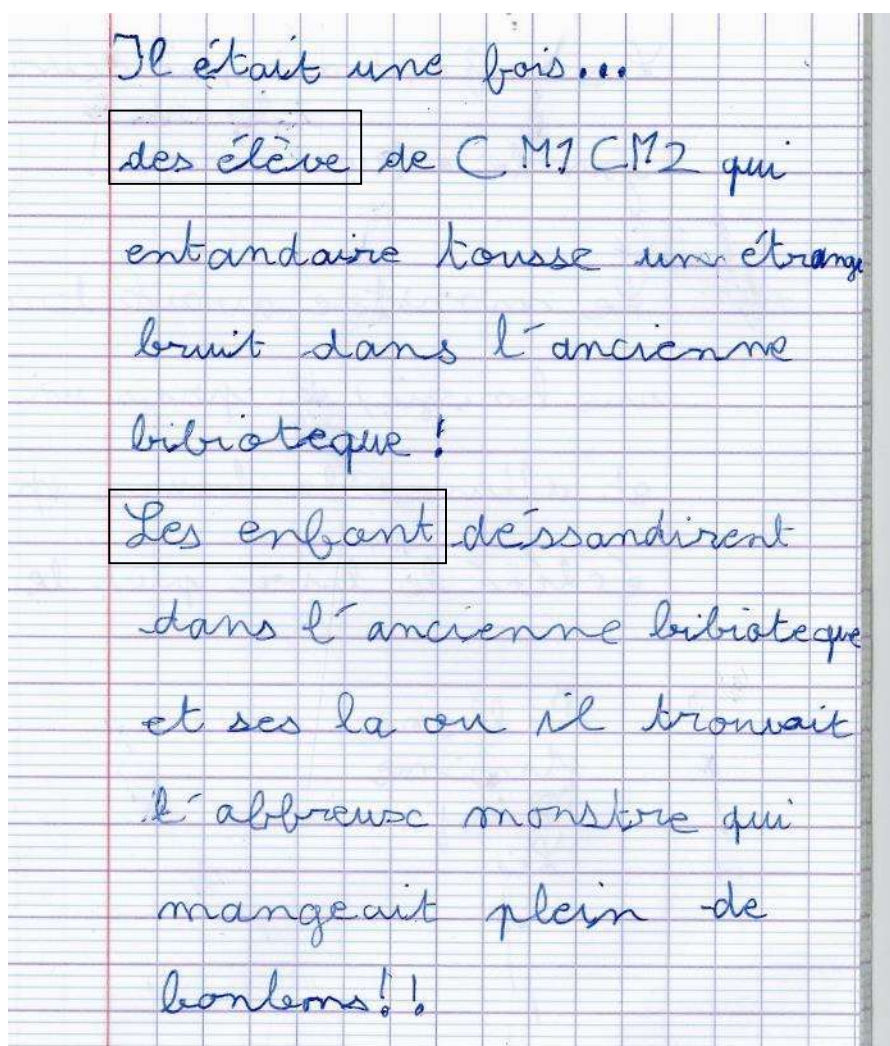 Il était une fois...
des élève de CM1 CM2 qui
entandaire tousse un étrange
bruit dans l'ancienne
bibioteque !
Les enfant déssandirent
dans l'ancienne bibioteque
et ses la ou il trouvait
l'affreuse monstre qui
mangeait plein de
bonbons!!